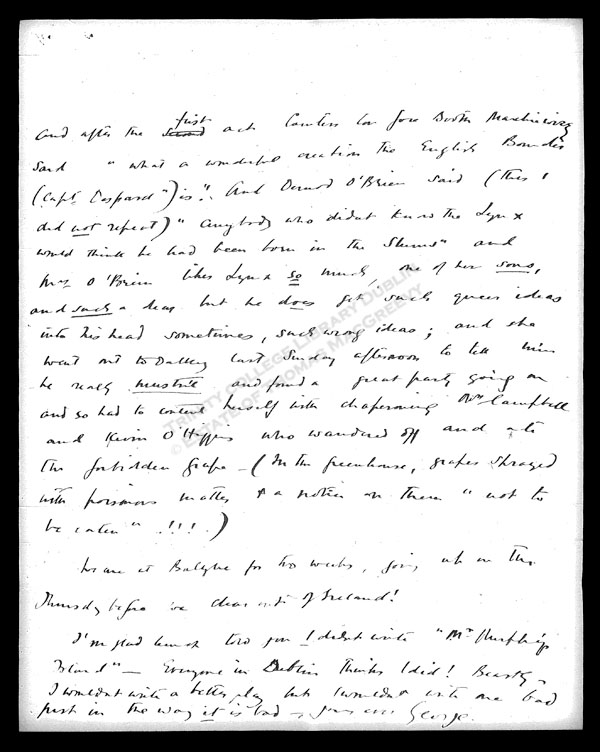 and after the first second act Countess Gore Booth Markievicz
said "what a wonderful creation the English Bounder
(Capt. Despard") is". And Dermod O'Brien said (this I
did not repeat) "anybody who didn't know the Lynx
would think he had been born in the Slums" and
Mrs O'Brien likes Lynx so much, one of her sons,
and such a dear but he does get such queer ideas
into his head sometimes, such wrong ideas; and she
went out to Dalkey last Sunday afternoon to tell him
he really mustn't and found a great party going on
and so had to content herself with chaperoning Mrs Campbell
and Kevin O'Higgins who wandered off and ate
the forbidden grape - (In the greenhouse, grapes sprayed
with poisonous matter & a notice on them "not to
be eaten" .!!!.)
We are at for two weeks, going up on the
Thursday before we clear out of Ireland!
I'm glad told you I didn't write "Mr Murphy's
Island" - Everyone in Dublin thinks I did! Beastly.
I wouldn't write a better play but I wouldn't write one bad
just in the way it is bad - yours ever George.
TRINITY COLLEGE LIBRARY DUBLIN
© ESTATE OF THOMAS MACGREEVY